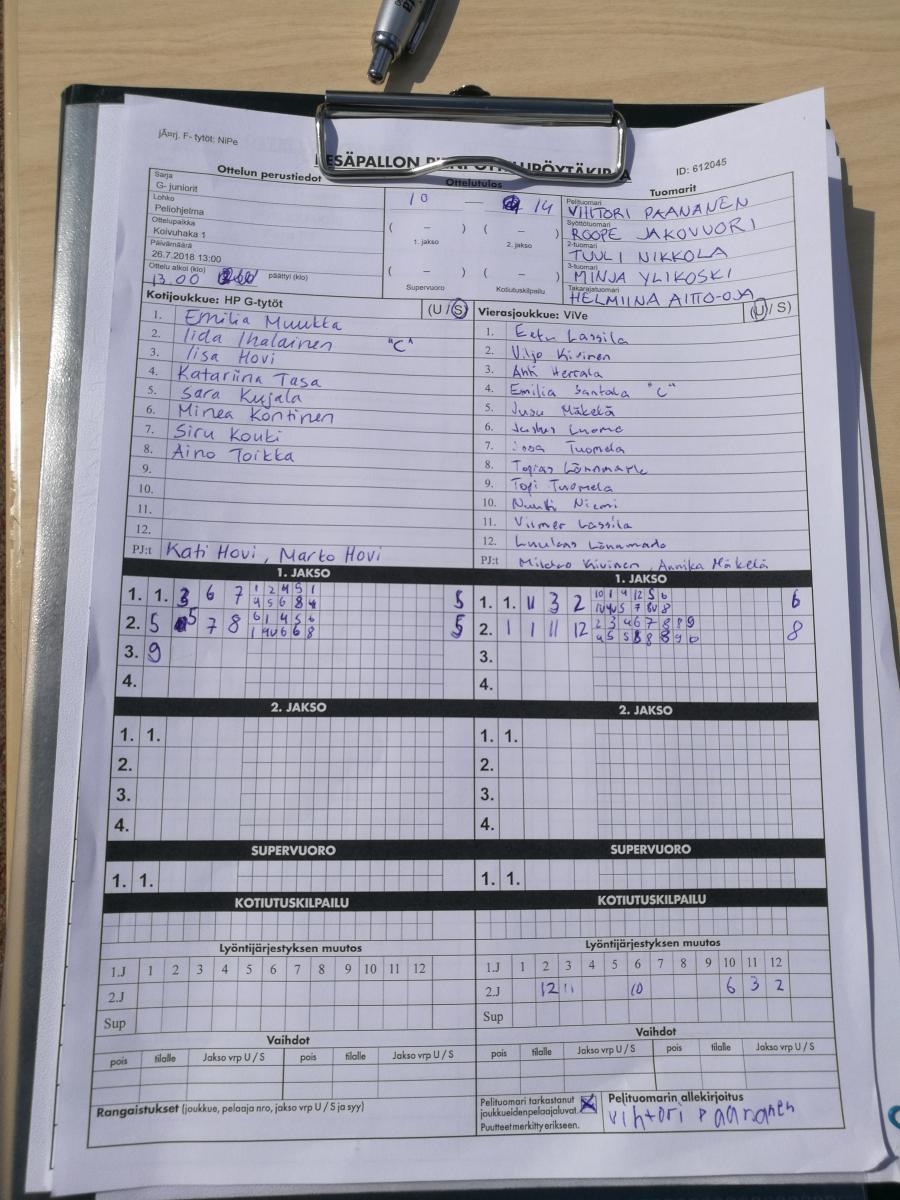 jÃ¤rj. F- tytöt: NiPe
ID: 612045
Ottelun perustiedot
Ottelutulos
Tuomarit
Sarja
G- juniorit
Lohko
Peliohjelma
Ottelupaikka
Koivuhaka 1
Päivämäärä
26.7.2018 13:00
Ottelu alkoi (klo) päättyi (klo)
13.00
10 — 14
( – ) ( – )
1. jakso 2. jakso
( – ) ( – )
Supervuoro Kotiutuskilpailu
Pelituomari
VIHTORI PAANANEN
Syöttötuomari
ROOPE JAKOVUORI
2-tuomari
TUULI NIKKOLA
3-tuomari
MINJA YLIKOSKI
Takarajatuomari
HELMIINA AITTO-OJA
Kotijoukkue: HP G-tytöt (U / S)
1. Emilia Muukka
2. Iida Ihalainen "C"
3. Iisa Hovi
4. Katariina Tasa
5. Sara Kujala
6. Minea Kontinen
7. Siru Kouki
8. Aino Toikka
9.
10.
11.
12.
PJ:t Kati Hovi, Marko Hovi
Vierasjoukkue: ViVe (U / S)
1. Eetu Lassila
2. Viljo Kivinen
3. Ahti Hertala
4. Emilia Santala "C"
5. Jusu Mäkelä
6. Luoma
7. Tuomela
8. Topias Lönnmark
9. Topi Tuomela
10. Nuutti Niemi
11. Vilmer Lassila
12.
PJ:t Kivinen, Annika Mäkelä
1. JAKSO
1. 1. 3 6 7 5
2. 5 5 7 8 5
3. 9
4.
1. JAKSO
1. 1. 11 3 2 6
2. 1 1 11 12 8
3.
4.
2. JAKSO
1. 1.
2.
3.
4.
2. JAKSO
1. 1.
2.
3.
4.
SUPERVUORO
1. 1.
SUPERVUORO
1. 1.
KOTIUTUSKILPAILU
KOTIUTUSKILPAILU
Lyöntijärjestyksen muutos
1.J 1 2 3 4 5 6 7 8 9 10 11 12
2.J
Sup
Lyöntijärjestyksen muutos
1.J 1 2 3 4 5 6 7 8 9 10 11 12
2.J 12 11 10 6 3 2
Sup
Vaihdot
pois tilalle Jakso vrp U / S pois tilalle Jakso vrp U / S
Vaihdot
pois tilalle Jakso vrp U / S pois tilalle Jakso vrp U / S
Rangaistukset (joukkue, pelaaja nro, jakso vrp U / S ja syy)
Pelituomari tarkastanut
joukkueidenpelaajaluvat.
Puutteet merkitty erikseen.
Pelituomarin allekirjoitus
vihtori paananen